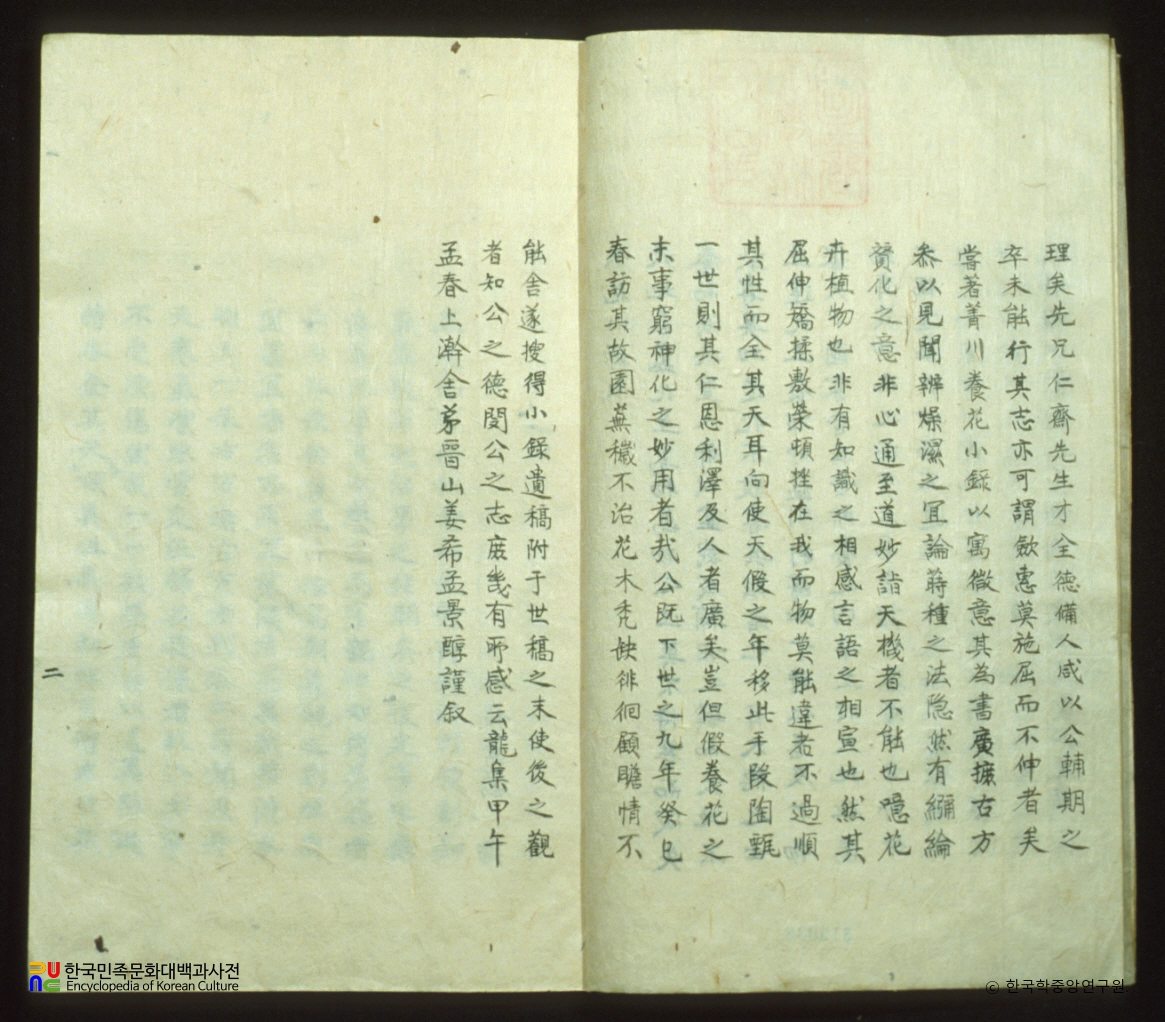 理矣先兄仁齋先生才全德備人咸以公輔期之
卒未能行其志亦可謂歛惠莫施屈而不伸者矣
嘗著菁川養花小録以寓微意其為書廣摭古方
叅以見聞辨燥濕之宜論蒔種之法隠然有彌綸
賛化之意非心通至道妙詣天機者不能也噫花
卉植物也非有知識之相感言語之相宣也然其
屈伸矯揉敷榮頓挫在我而物莫能違者不過順
其性而全其天耳向使天假之年移此手段陶甄
一世則其仁恩利澤及人者廣矣豈但假養花之
末事窮神化之妙用者哉公既下世之九年癸巳
春訪其故園蕪穢不治花木禿缺徘徊顧瞻情不
能舍遂搜得小録遺稿附于世稿之末使後之觀
者知公之德閔公之志庻㡬有所感云龍集甲午
孟春上澣舎弟晉山姜希孟景醇謹叙
二
한국민족문화대백과사전
Encyclopedia of Korean Culture
© 한국학중앙연구원